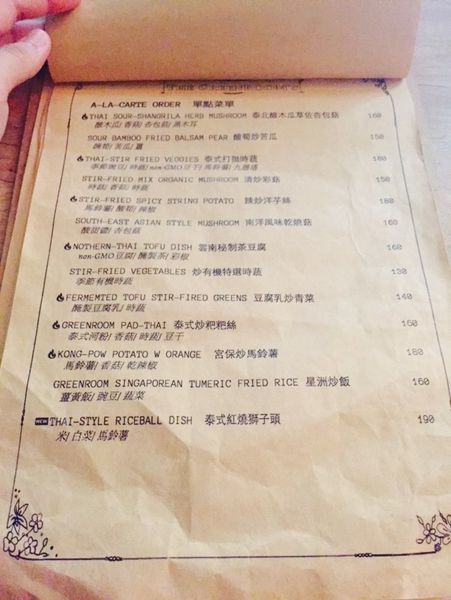 A-LA-CARTE ORDER 單點菜單
THAI SOUR-SHANGRILA HERB MUSHROOM 泰北醃木瓜草佐杏包菇 160
醃木瓜/香菇/杏包菇/黑木耳
SOUR BAMBOO FRIED BALSAM PEAR 醃筍炒苦瓜 150
醃筍/苦瓜/薑
THAI-STIR FRIED VEGGIES 泰式打拋時蔬 180
季節豌豆/時蔬/non-GMO豆干/馬鈴薯/九層塔
STIR-FRIED MIX ORGANIC MUSHROOM 清炒彩菇 150
時菇/香菇/時蔬
STIR-FRIED SPICY STRING POTATO 辣炒洋芋絲 180
馬鈴薯/酸筍/辣椒
SOUTH-EAST ASIAN STYLE MUSHROOM 南洋風味乾燒菇 160
酸甜醬/杏包菇
NOTHERN-THAI TOFU DISH 雲南秘制茶豆腐 160
non-GMO豆腐/醃製茶/彩椒
STIR-FRIED VEGETABLES 炒有機特選時蔬 130
季節有機時蔬
FERMEMTED TOFU STIR-FIRED GREENS 豆腐乳炒青菜 140
醃製豆腐乳/時蔬
GREENROOM PAD-THAI 泰式炒粑粑絲 160
泰式河粉/香菇/時蔬/豆干
KONG-POW POTATO W ORANGE 宮保炒馬鈴薯 180
馬鈴薯/香菇/乾辣椒
GREENROOM SINGAPOREAN TUMERIC FRIED RICE 星洲炒飯 160
薑黃飯/豌豆/蔬菜
NEW THAI-STYLE RICEBALL DISH 泰式紅燒獅子頭 190
米/白菜/馬鈴薯